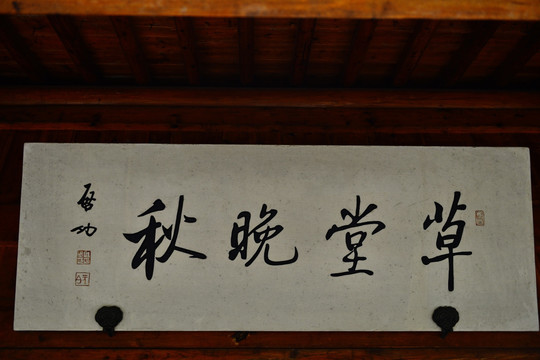 草堂晚秋
启功